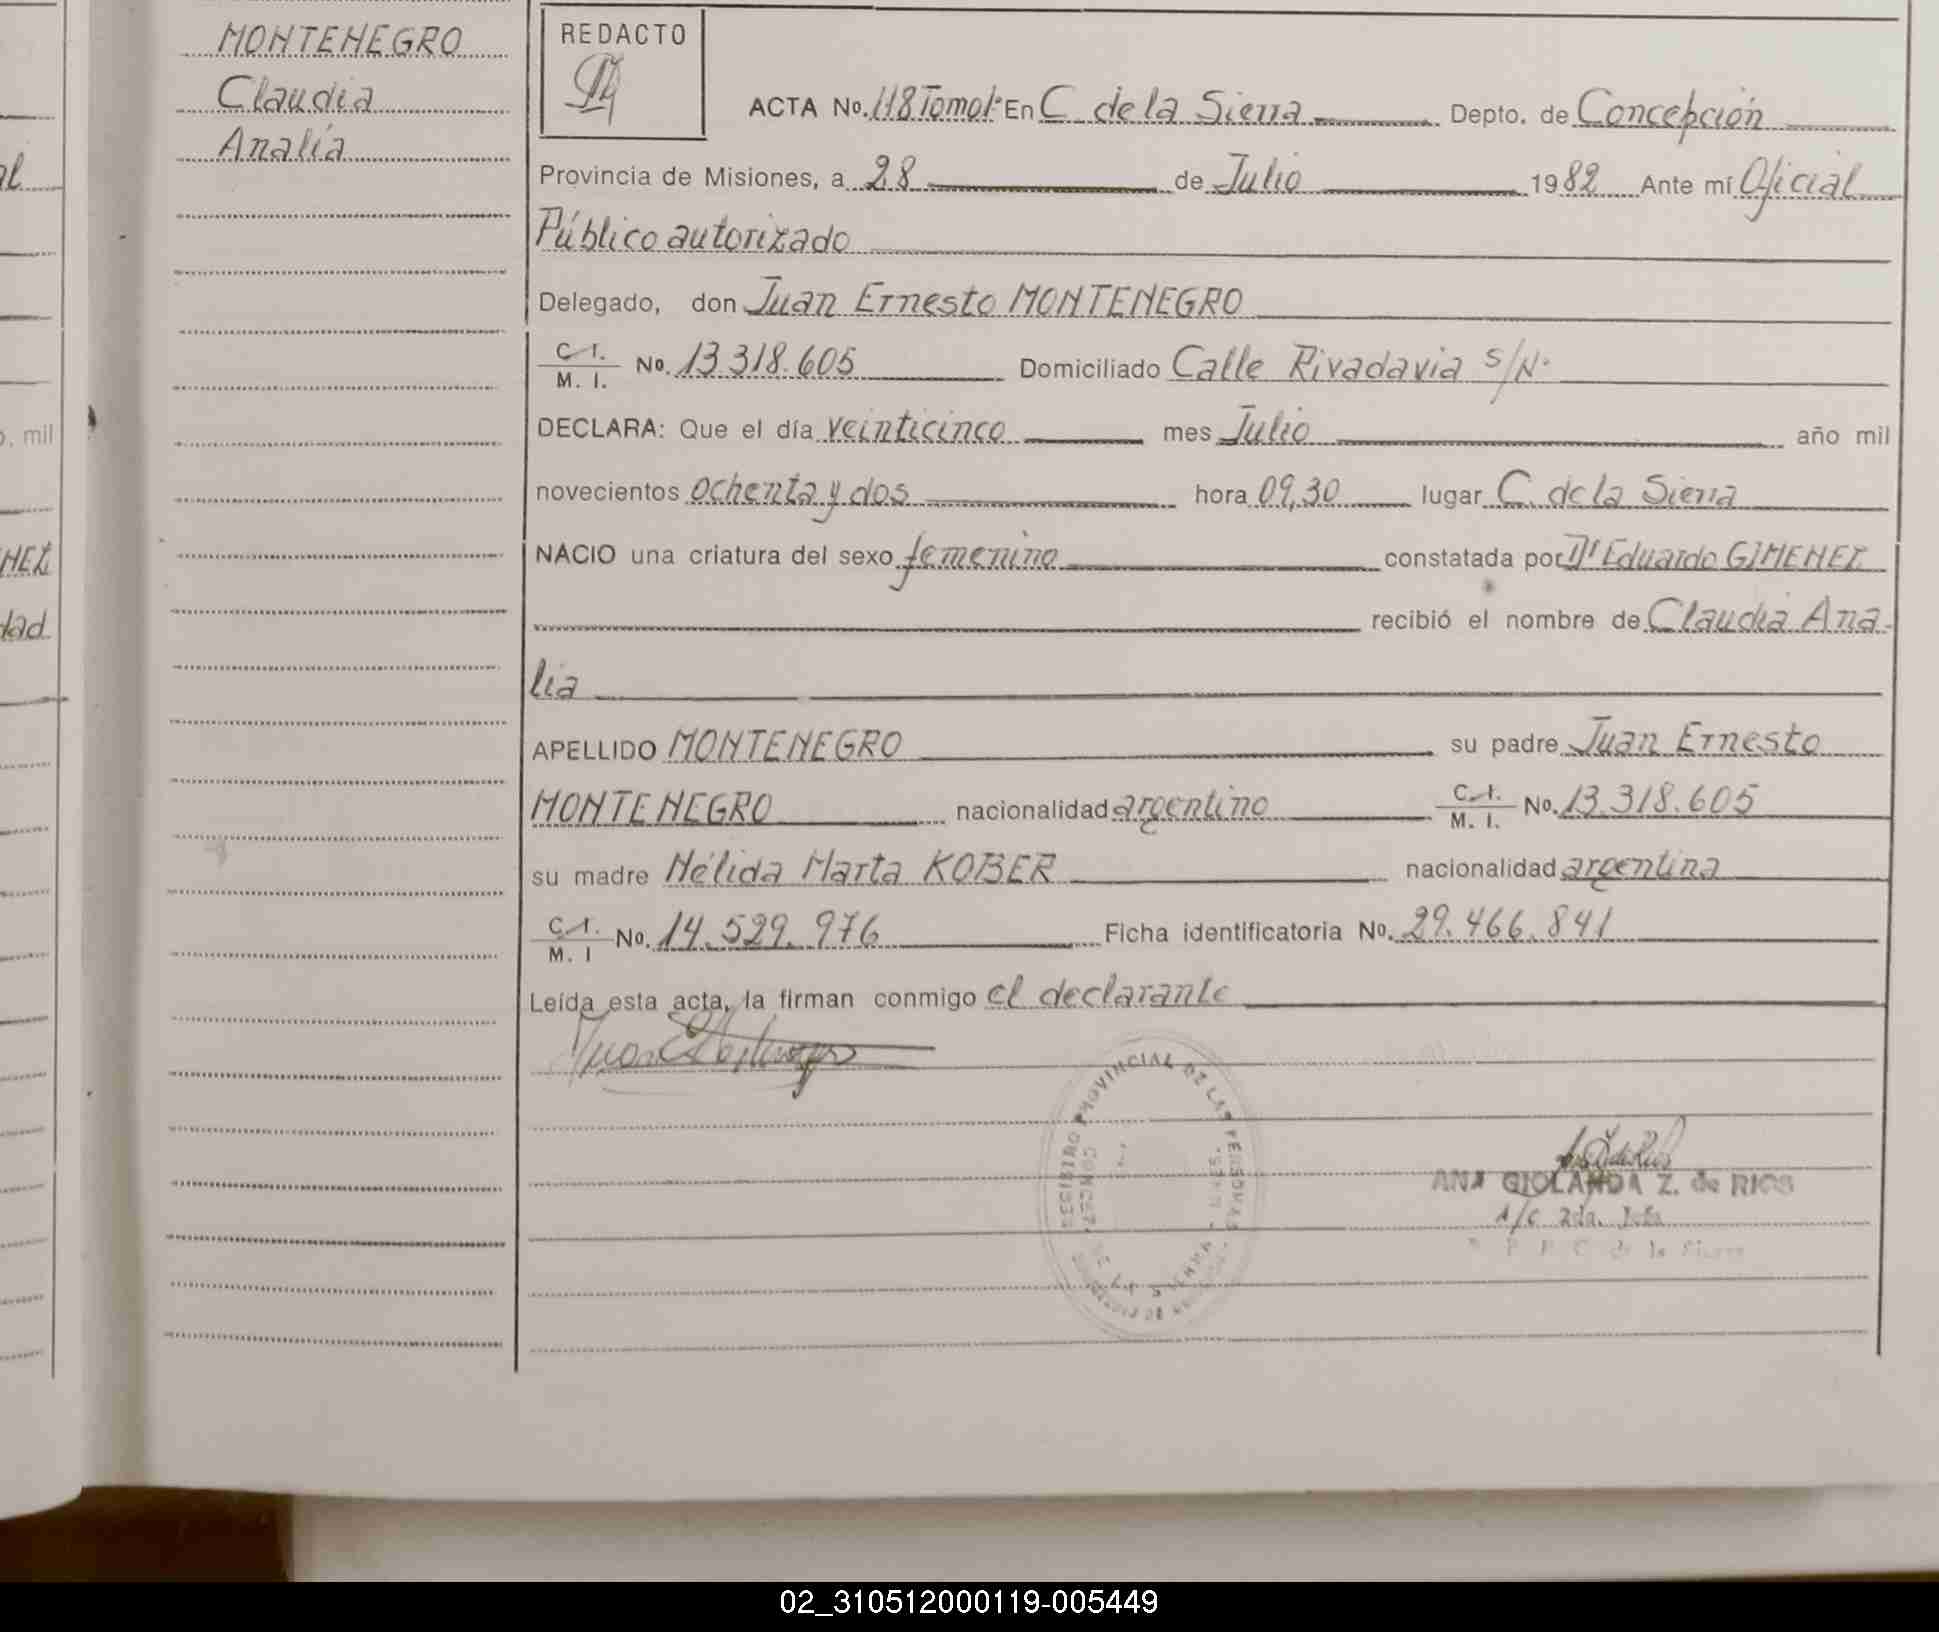 MONTENEGRO
Claudia
Analía
REDACTO
ACTA No. 118 Tomo 1º En C. de la Sierra Depto. de Concepción
Provincia de Misiones, a 28 de Julio 1982 Ante mí Oficial
Público autorizado
Delegado, don Juan Ernesto MONTENEGRO
C.I.
M. I. No. 13.318.605 Domiciliado Calle Rivadavia S/Nº
DECLARA: Que el día veinticinco mes Julio año mil
novecientos ochenta y dos hora 09,30 lugar C. de la Sierra
NACIO una criatura del sexo femenino constatada por Dr Eduardo GIMENEZ
recibió el nombre de Claudia Ana-
lia
APELLIDO MONTENEGRO su padre Juan Ernesto
MONTENEGRO nacionalidad argentino C.I. M. I. No. 13.318.605
su madre Nélida Marta KOBER nacionalidad argentina
C.I.
M. I No. 14.529.976 Ficha identificatoria No. 29.466.841
Leída esta acta, la firman conmigo el declarante
REGISTRO PROVINCIAL DE LAS PERSONAS
ANA GIOLANDA Z. de RIOS
A/C 2da. Jefa
C. de la Sierra
al
o, mil
NEZ
dad
02_310512000119-005449